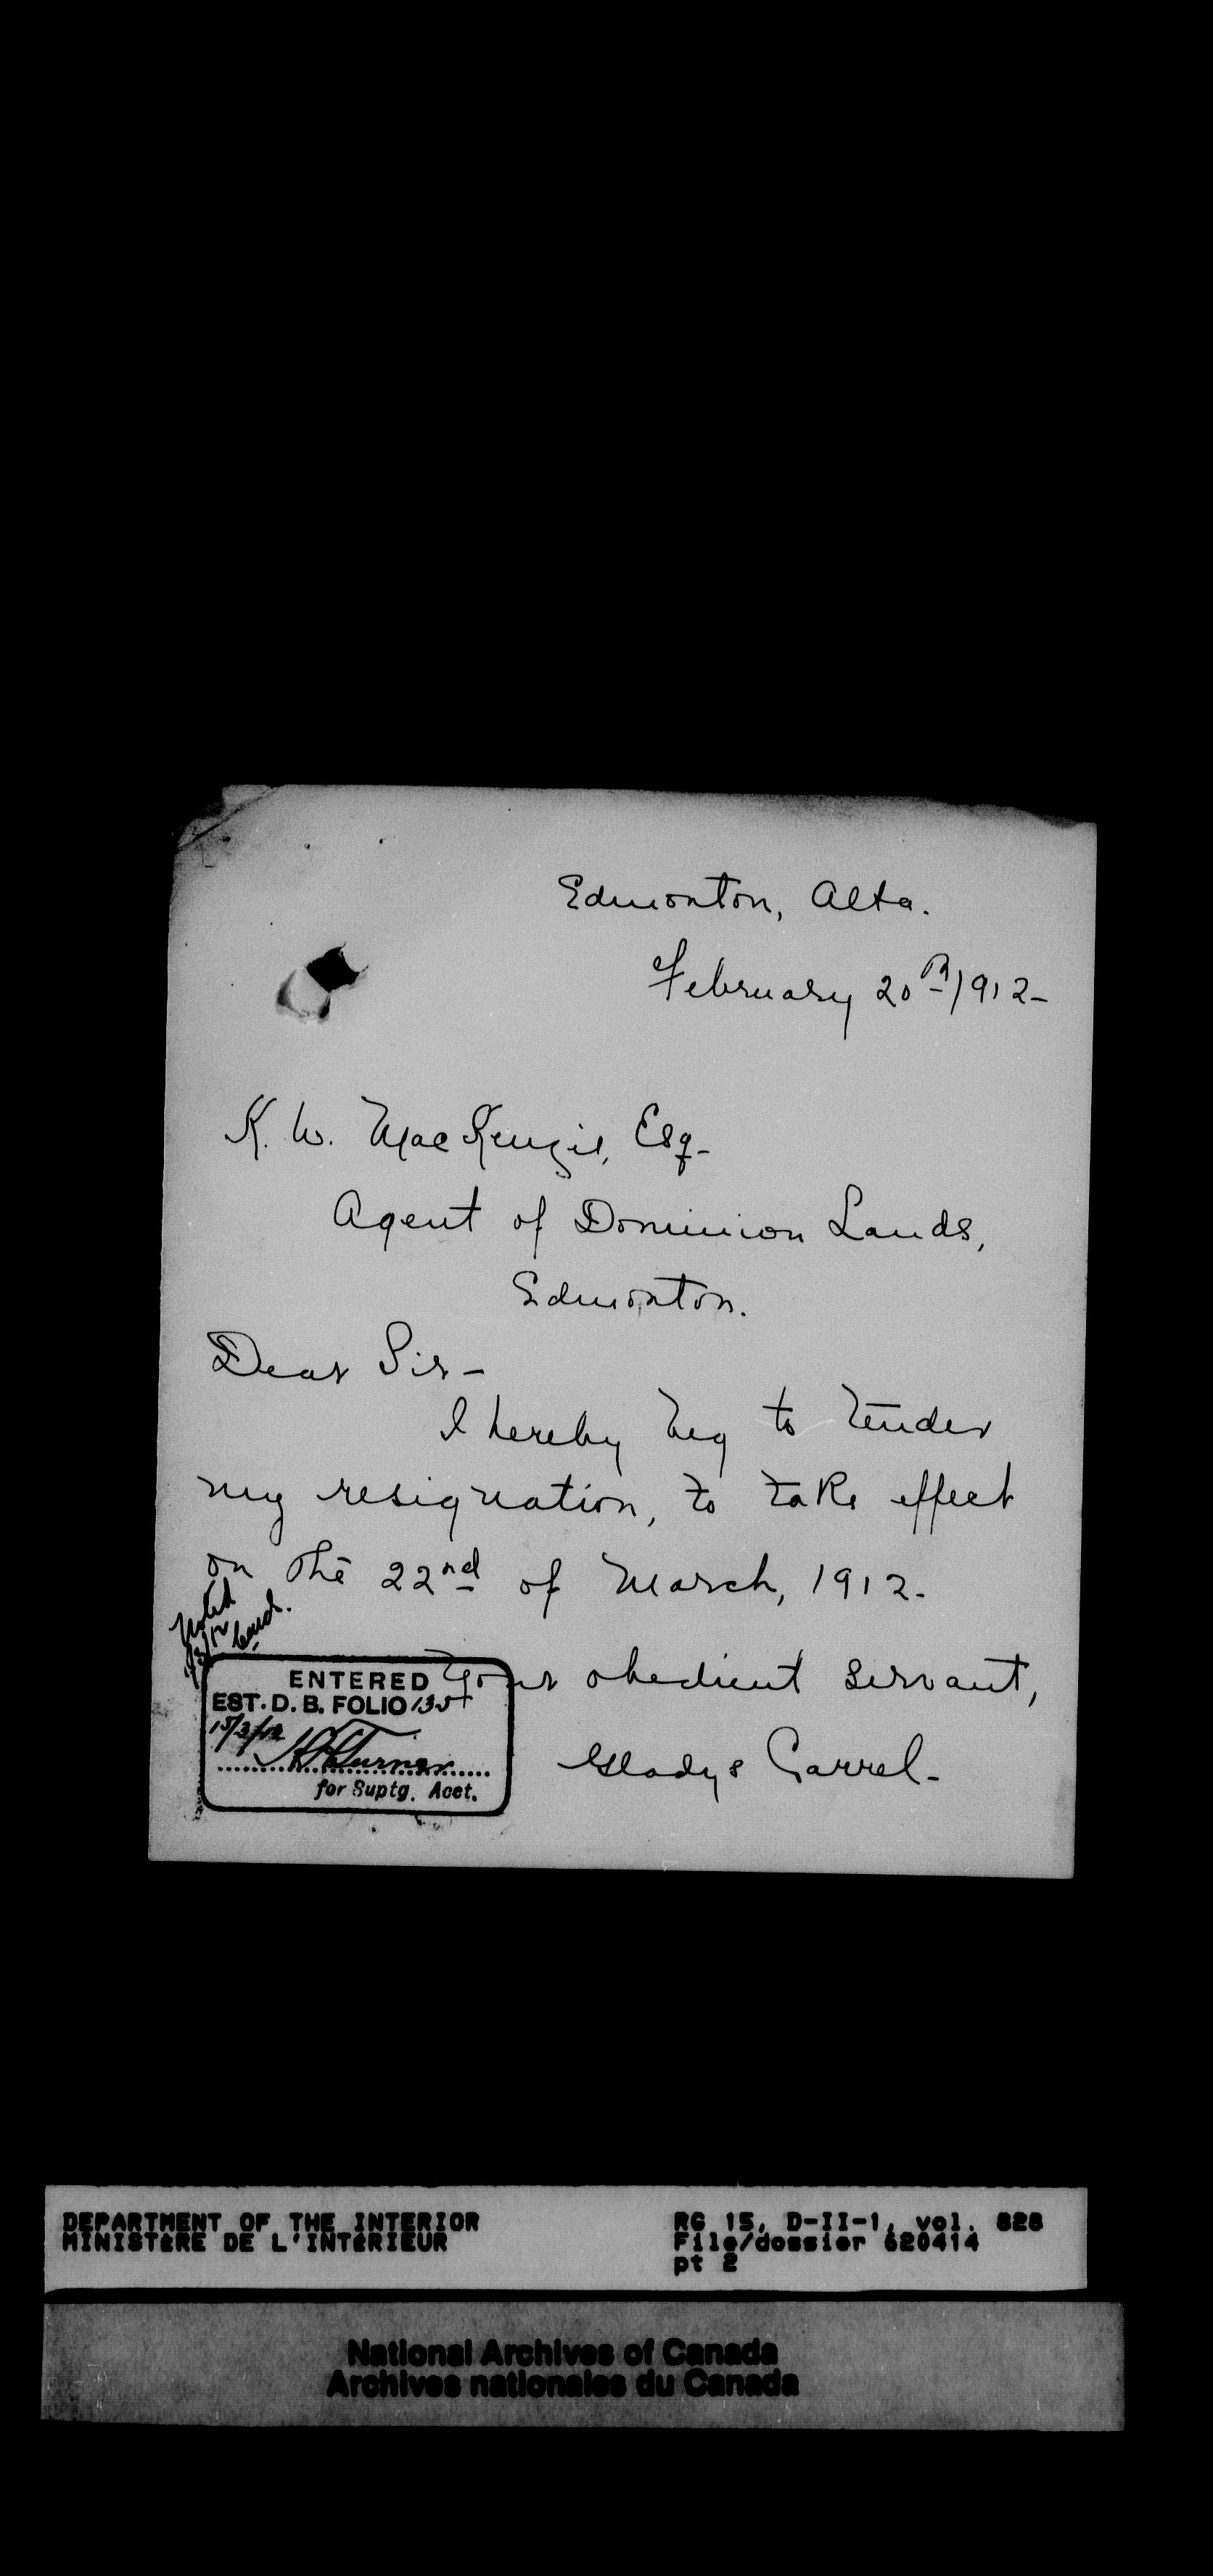 Edmonton, Alta.
February 20th 1912-
K. W. MacKenzie, Esq-
Agent of Dominion Lands,
Edmonton.
Dear Sir-
I hereby beg to tender
my resignation, to take effect
on the 22nd of March, 1912-
Noted
Your obedient servant,
Gladys Garrel-
ENTERED
EST. D. B. FOLIO 135
15/3/12
Turner
for Suptg. Acct.
DEPARTMENT OF THE INTERIOR
MINISTERE DE L'INTERIEUR
RG 15, D-II-1, vol. 828
File/dossier 620414
pt 2
National Archives of Canada
Archives nationales du Canada